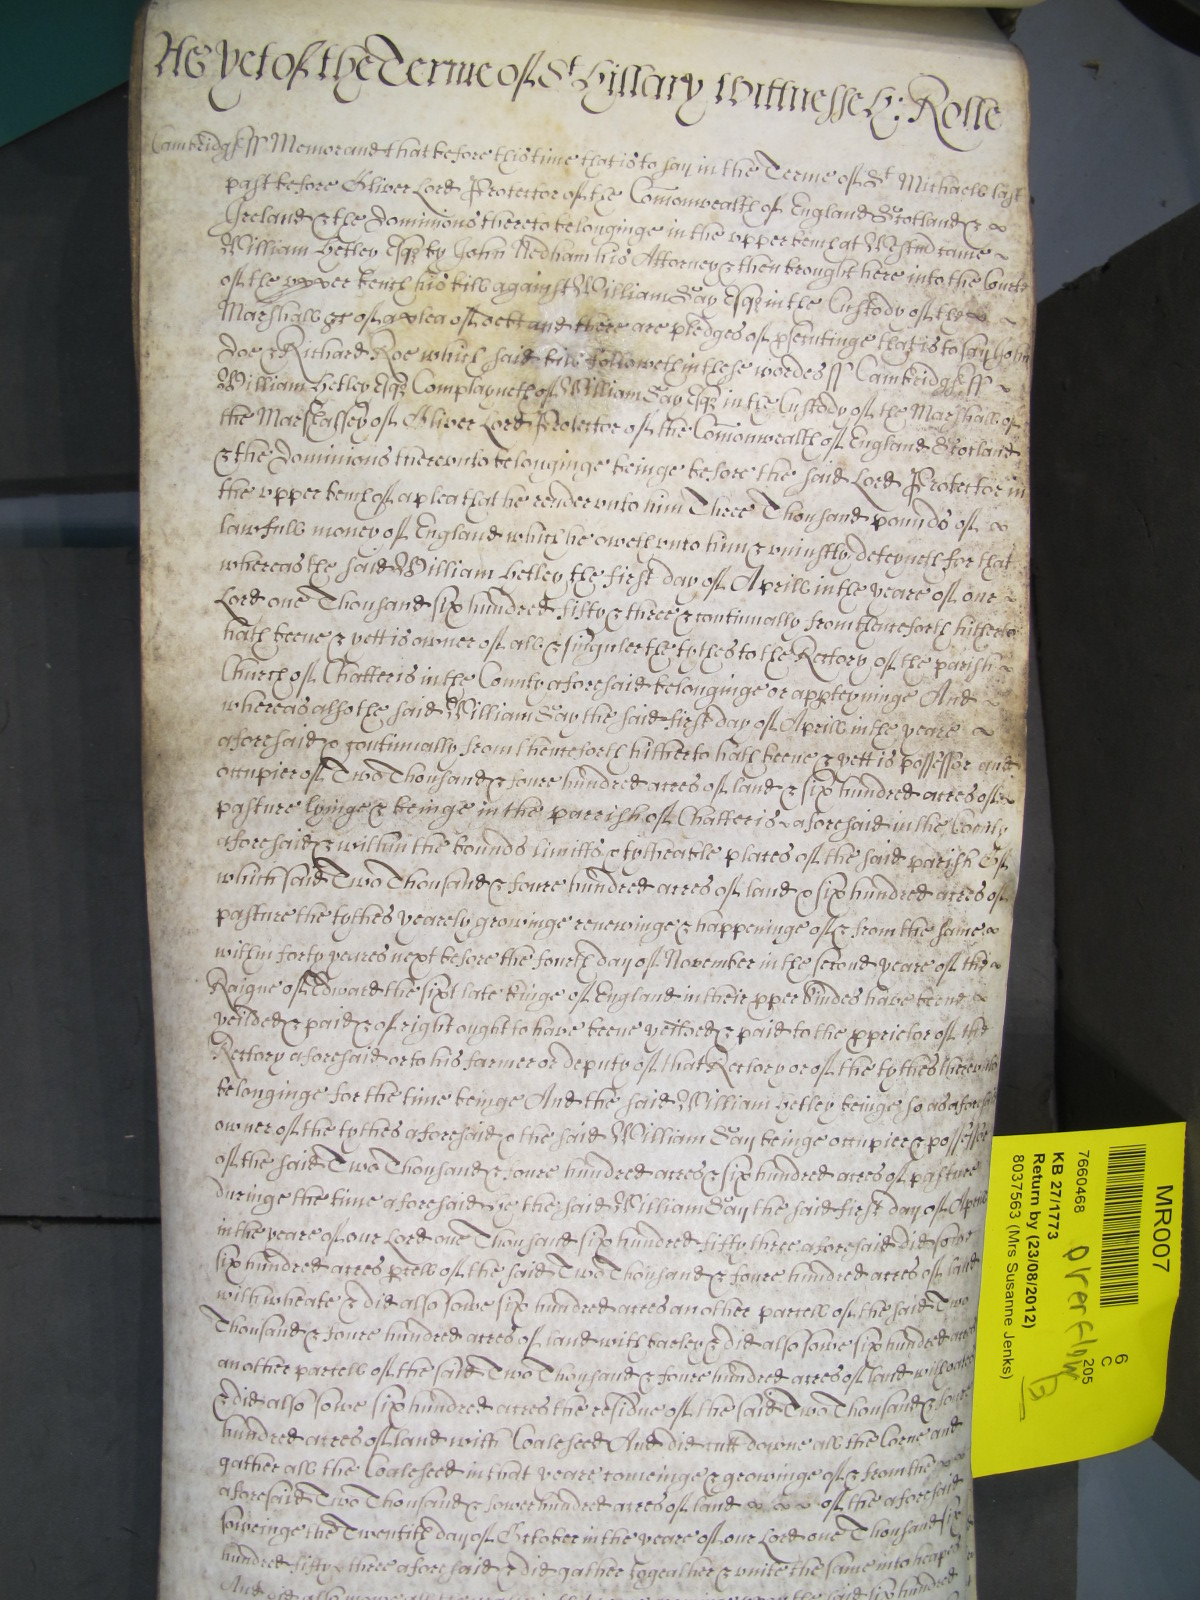 As yet of the Terme of St Hillary Wittnesse H: Rolle
Cambridgss Memorand that before this time that is to say in the Terme of St Michaell last
past before Oliver Lord Protector of the Comonwealth of England Scotland &
Ireland & the Dominions thereto belonginge in the upper bench at Westm came
William Hetley Esqr by John Nedham his Attorney & then brought here into the Courte
of the upper bench his bill against William Say Esqr in the Custody of the
Marshall &c of a plea of debt and there are pledges of psecutinge that is to say John
Doe & Richard Roe which said bill followeth in these wordes ss Cambridgss
William Hetley Esqr Complayneth of William Say Esqr in the Custody of the Marshall of
the Marshalsey of Oliver Lord Protector of the Comonwealth of England Scotland
& the Dominions thereunto belonginge beinge before the said Lord Protector in
the upper bench of a plea that he render unto him Three Thousand pounds of
lawfull money of England which he oweth unto him & uniustly deteyneth for that
whereas the said William Hetley the first day of Aprill in the yeare of our
Lord one Thousand six hundred fifty & three & continually from thenceforth hitherto
hath beene & yett is owner of all & singuler the tythes to the Rectory of the parish
Church of Chatteris in the County aforesaid belonginge or apperteyninge And
whereas also the said William Say the said first day of Aprill in the yeare
aforesaid & continually from thenceforth hitherto hath beene & yett is possessor and
occupier of Two Thousand & foure hundred acres of land & six hundred acres of
pasture lyinge & beinge in the parrish of Chatteris aforesaid in the County
aforesaid & within the bounds limitts & tytheable places of the said parish Of
which said Two Thousand & foure hundred acres of land & six hundred acres of
pasture the tythes yearely growinge renewinge & happeninge of & from the same
within forty yeares next before the fourth day of November in the second yeare of the
Raigne of Edward the sixt late Kinge of England in their pper kindes have beene
yeilded & paid & of right ought to have beene yeilded & paid to the pprietor of the
Rectory aforesaid or to his farmer or deputy of that Rectory or of the tythes thereunto
belonginge for the time beinge And the said William Hetley beinge so as aforesaid
owner of the tythes aforesaid & the said William Say beinge occupier & possessor
of the said Two Thousand & foure hundred acres & six hundred acres of pasture
duringe the time aforesaid he the said William Say the said first day of Aprill
in the yeare of our Lord one Thousand six hundred fifty three aforesaid did sowe
six hundred acres pcell of the said Two Thousand & foure hundred acres of land
with wheate & did also sowe six hundred acres another parcell of the said Two
Thousand & foure hundred acres of land with barley & did also sowe six hundred acres
another parcell of the said Two Thousand & foure hundred acres of land with oates
& did also sowe six hundred acres the residue of the said Two Thousand & foure
hundred acres of land with Coaleseed And did cutt downe all the Corne and
gather all the Coaleseed in that yeare comeinge & growinge of & from the
aforesaid Two Thousand & fower hundred acres of land of the aforesaid
soweinge the Twentith day of October in the yeare of our Lord one Thousand six
hundred fifty & three aforesaid & did gather togeather & unite the same into heapes
And did also mowe the said six hundred
MR007
6
C
205
7660468
KB 27/1773
Return by (23/08/2012)
8037563 (Mrs Susanne Jenks)
Overflow